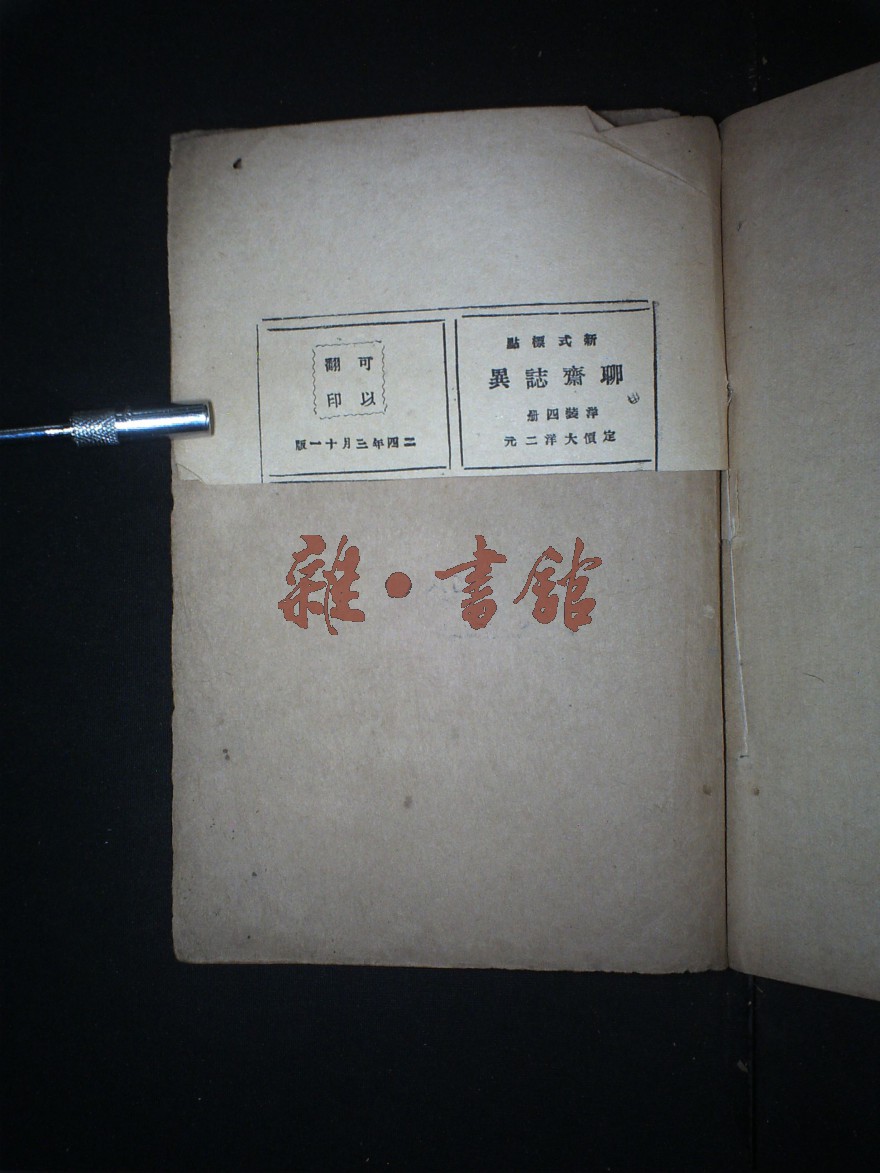 新式標點
聊齋誌異
洋裝四册
定價大洋二元
可以
翻印
二四年三月十一版
雜·書館